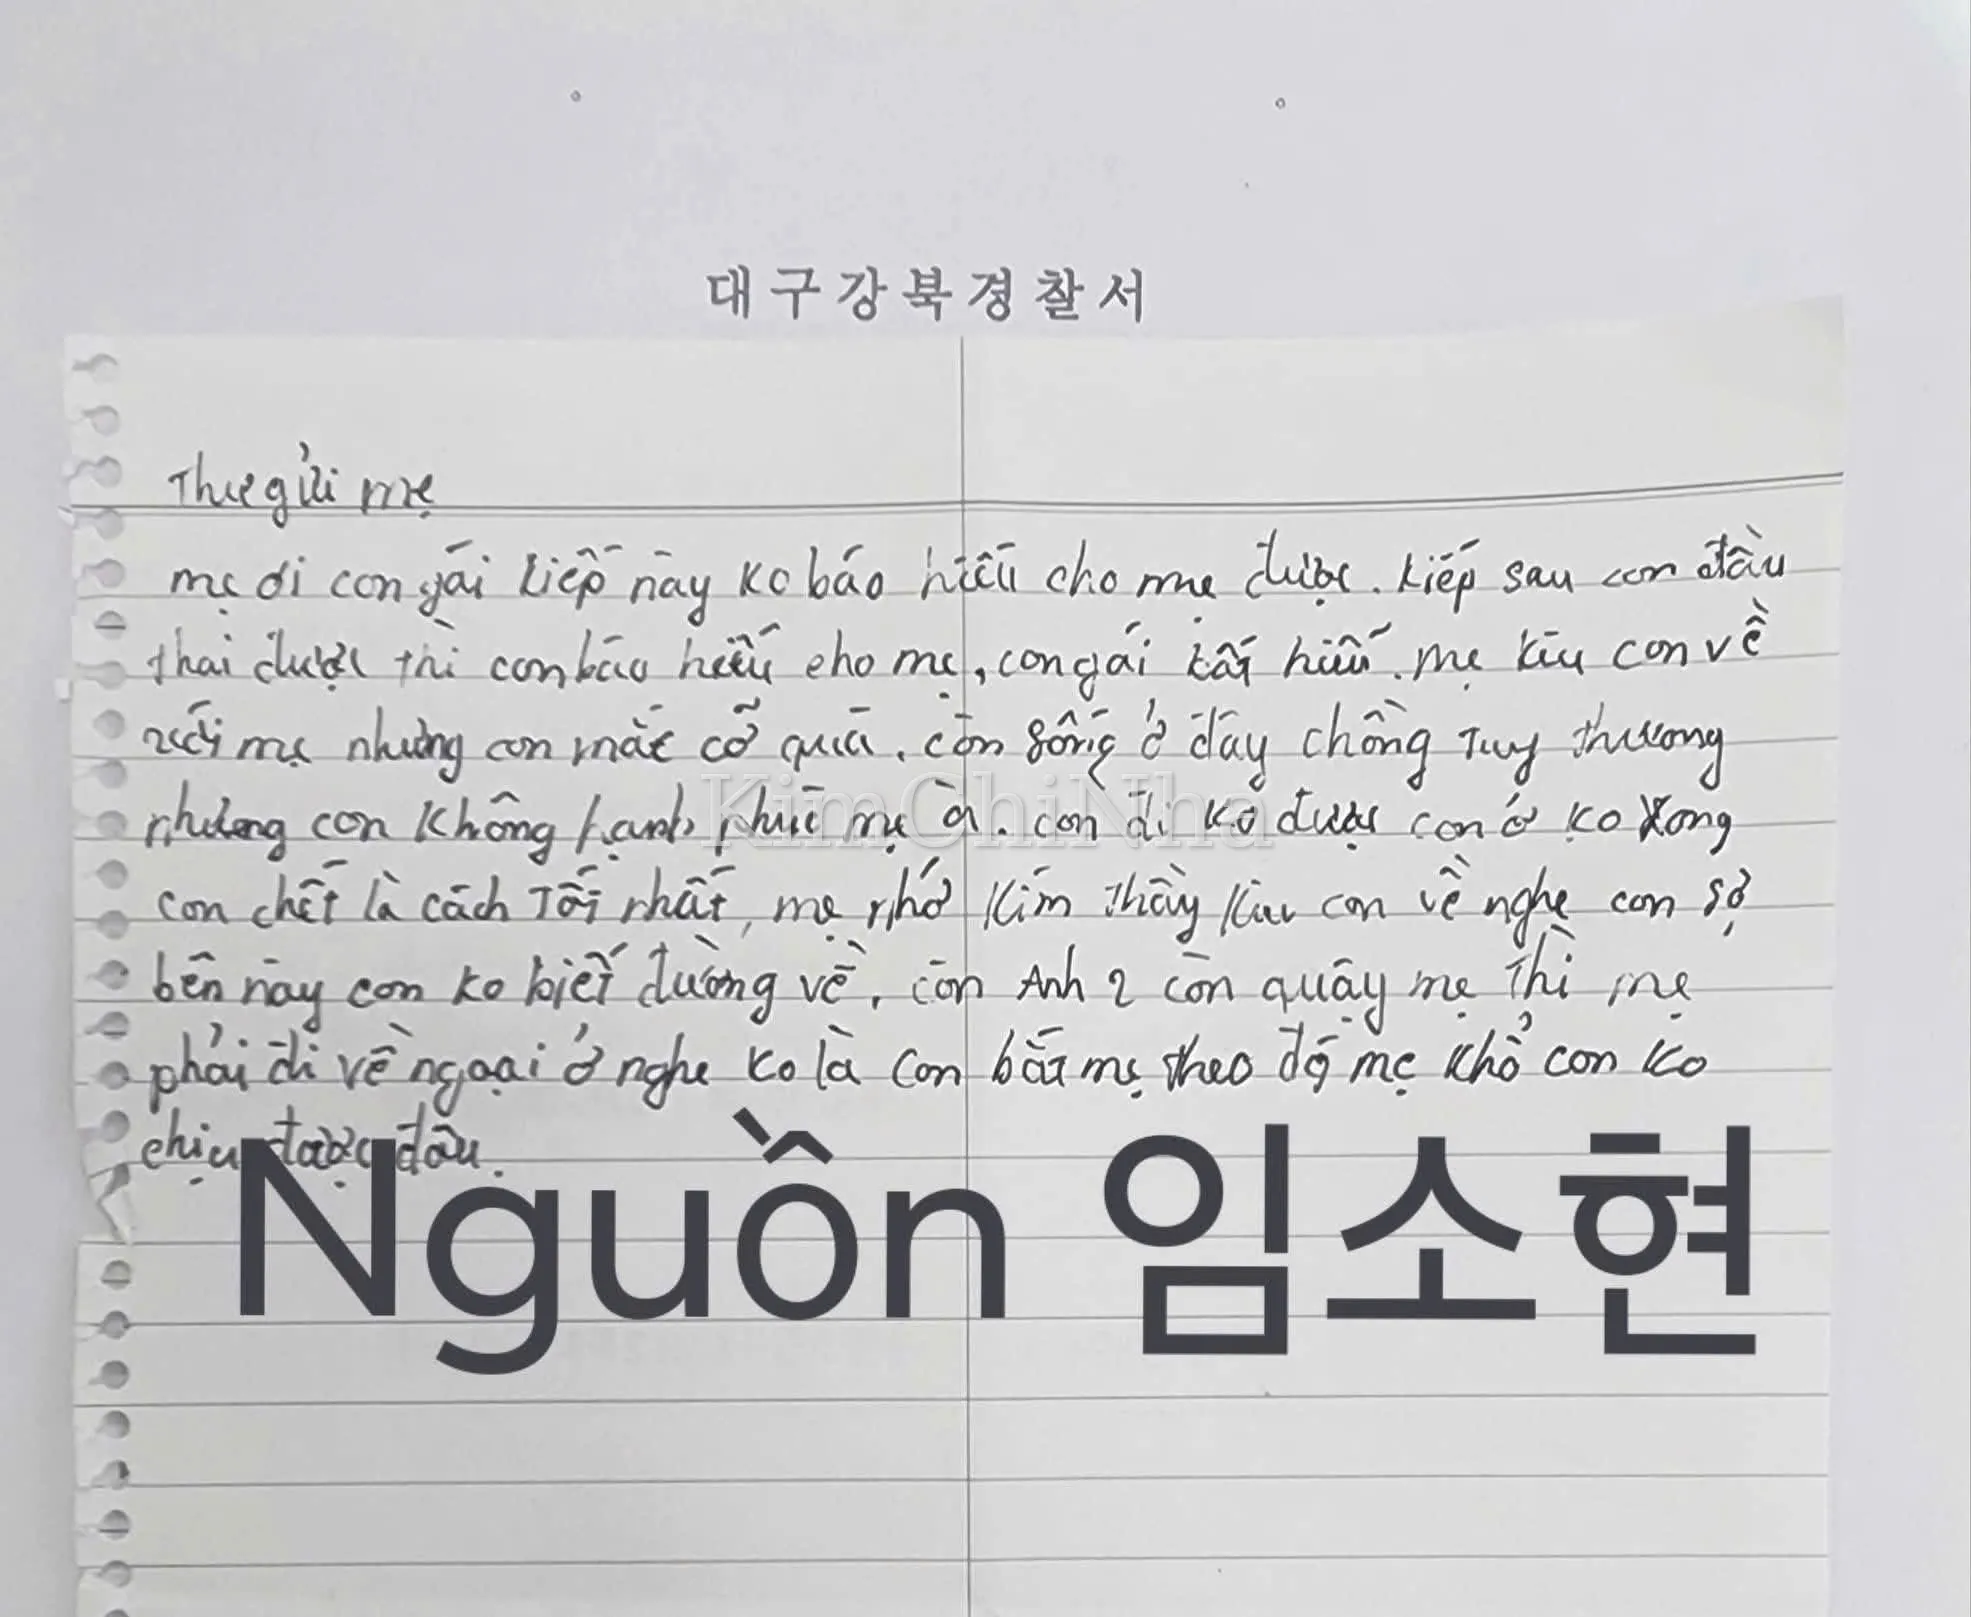 대구강북경찰서
Thư gửi mẹ
mẹ ơi con gái kiếp này ko báo hiếu cho mẹ được. kiếp sau con đầu
thai được thì con báo hiếu cho mẹ, con gái bất hiếu. mẹ kiu con về
với mẹ nhưng con mắc cỡ quá. còn sống ở đây chồng Tuy thương
nhưng con không hạnh phúc mẹ à. con đi ko được con ở ko xong
con chết là cách Tốt nhất, mẹ nhớ kím thầy kiu con về nghe con sợ
bên này con ko biết đường về, còn Anh 2 còn quậy mẹ thì mẹ
phải đi về ngoại ở nghe ko là con bắt mẹ theo đó mẹ khổ con ko
chịu được đâu.
KimChiNha
Nguồn 임소현